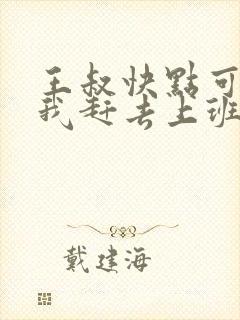 王叔快點可
我赶去上班
戴建海